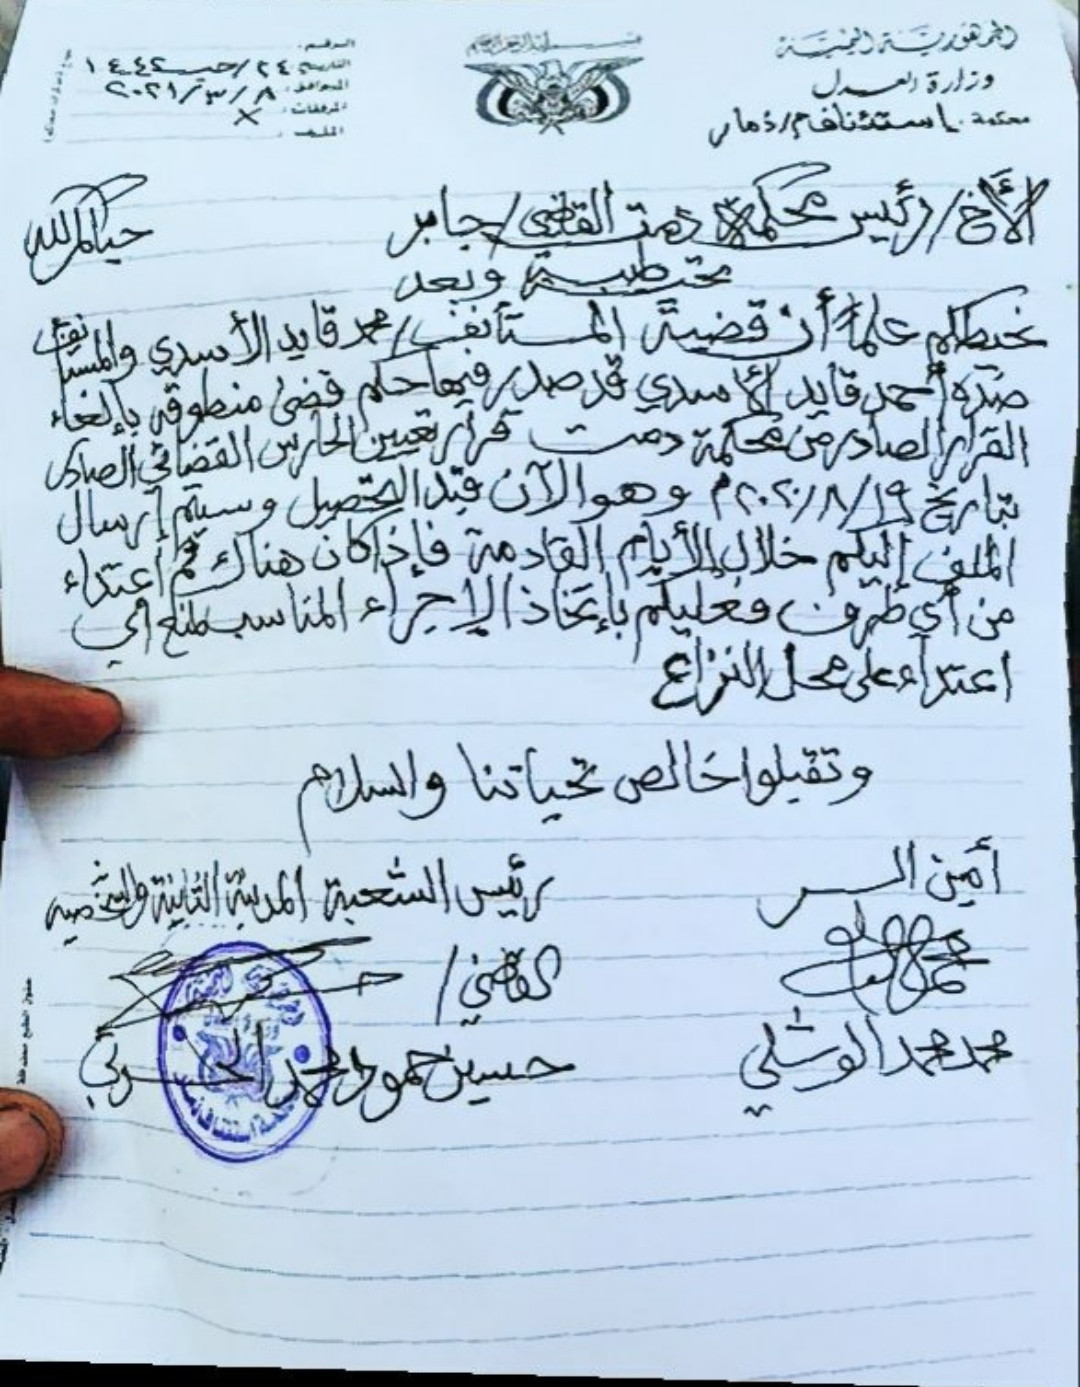 الجمهورية اليمنية
وزارة العدل
محكمة استئناف م/ذمار
بسم الله الرحمن الرحيم
الرقم:
التاريخ: ٢٤/رجب/١٤٤٢
الموافق: ٨/٣/٢٠٢١
المرفقات: X
الملف:
الأخ/رئيس محكمة دمت القاضي/جابر حياكم الله
تحية طيبة وبعد
نحيطكم علماً أن قضية المستأنف/محمد قايد الأسدي والمستأنف
ضده أحمد قايد الأسدي قد صدر فيها حكم قضى منطوقه بإلغاء
القرار الصادر من محكمة دمت قرار تعيين الحارس القضائي الصادر
بتاريخ ١٩/٨/٢٠٢٠م وهو الآن قيد التحصيل وسيتم إرسال
الملف إليكم خلال الأيام القادمة فإذا كان هناك ثم اعتداء
من أي طرف فعليكم بإتخاذ الإجراء المناسب لمنع أي
اعتداء على محل النزاع
وتقبلوا خالص تحياتنا والسلام
أمين السر
محمد محمد الوشلي
رئيس الشعبة المدنية الثانية والشخصية
القاضي/
حسين حمود محمد الحربي